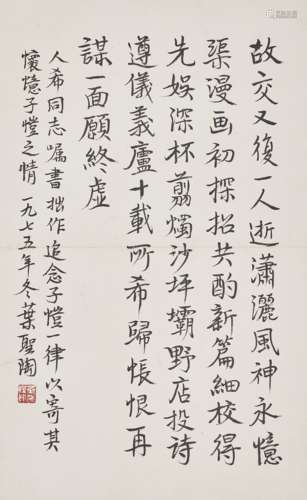 故交又復一人逝瀟灑風神永憶
渠漫画初探招共酌新篇細校得
先娛深杯翦燭沙坪壩野店投詩
遵儀義廬十載所希歸悵恨再
謀一面願終虛
人希同志囑書拙作追念子愷一律以寄其
懷憶子愷之情 一九七五年冬葉聖陶